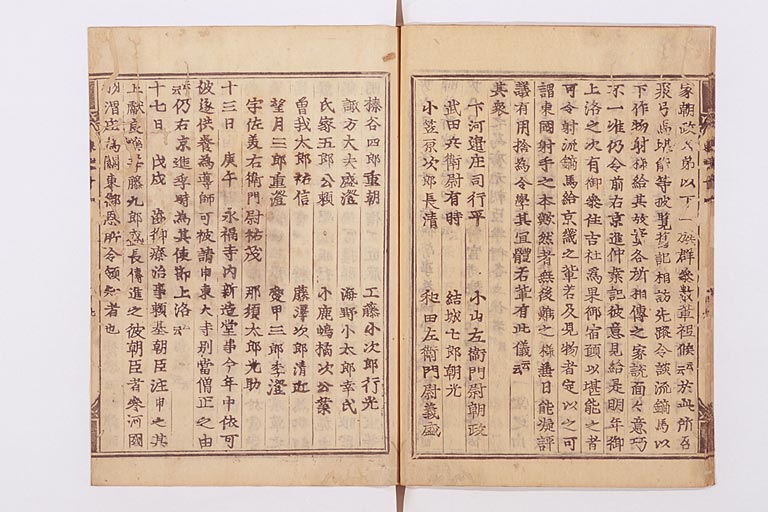 家朝政以弟以下一族群参数輩祗候云於此所召
聚弓馬堪能等披覧舊記相訪先蹤令談流鏑馬以
下作物射様給其故實各所相傳之家説面々意巧
不一准仍令前右京進仲業記彼意見給是明年御
上洛之次有御参住吉社為果御宿願以堪能之者
可令射流鏑馬給京畿之輩若及見物者定以之可
謂東國射手之本歟然者無後難之様兼日能凝評
議有用捨為令學其宜體若輩有此儀云々
其衆
下河邊庄司行平 小山左衛門尉朝政
武田兵衛尉有時 結城七郎朝光
小笠原次郎長清 和田左衛門尉義盛
榛谷四郎重朝 工藤小次郎行光
諏方大夫盛澄 海野小太郎幸氏
氏家五郎公頼 小鹿嶋橘次公業
曽我太郎祐信 藤澤次郎清近
望月三郎重澄 愛甲三郎季澄
宇佐美右衛門尉祐茂 那須太郎光助
十三日 庚午 永福寺内新造堂事今年中依可
被遂供養為導師可被請申東大寺別當僧正之由
云々仍右京進季時為其使節上洛云々
十七日 戊戌 将軍御療治事頼基朝臣注申之其
上献良薬等藤九郎盛長傳進之彼朝臣者参河國
羽渭庄為關東御恩所令領知者也